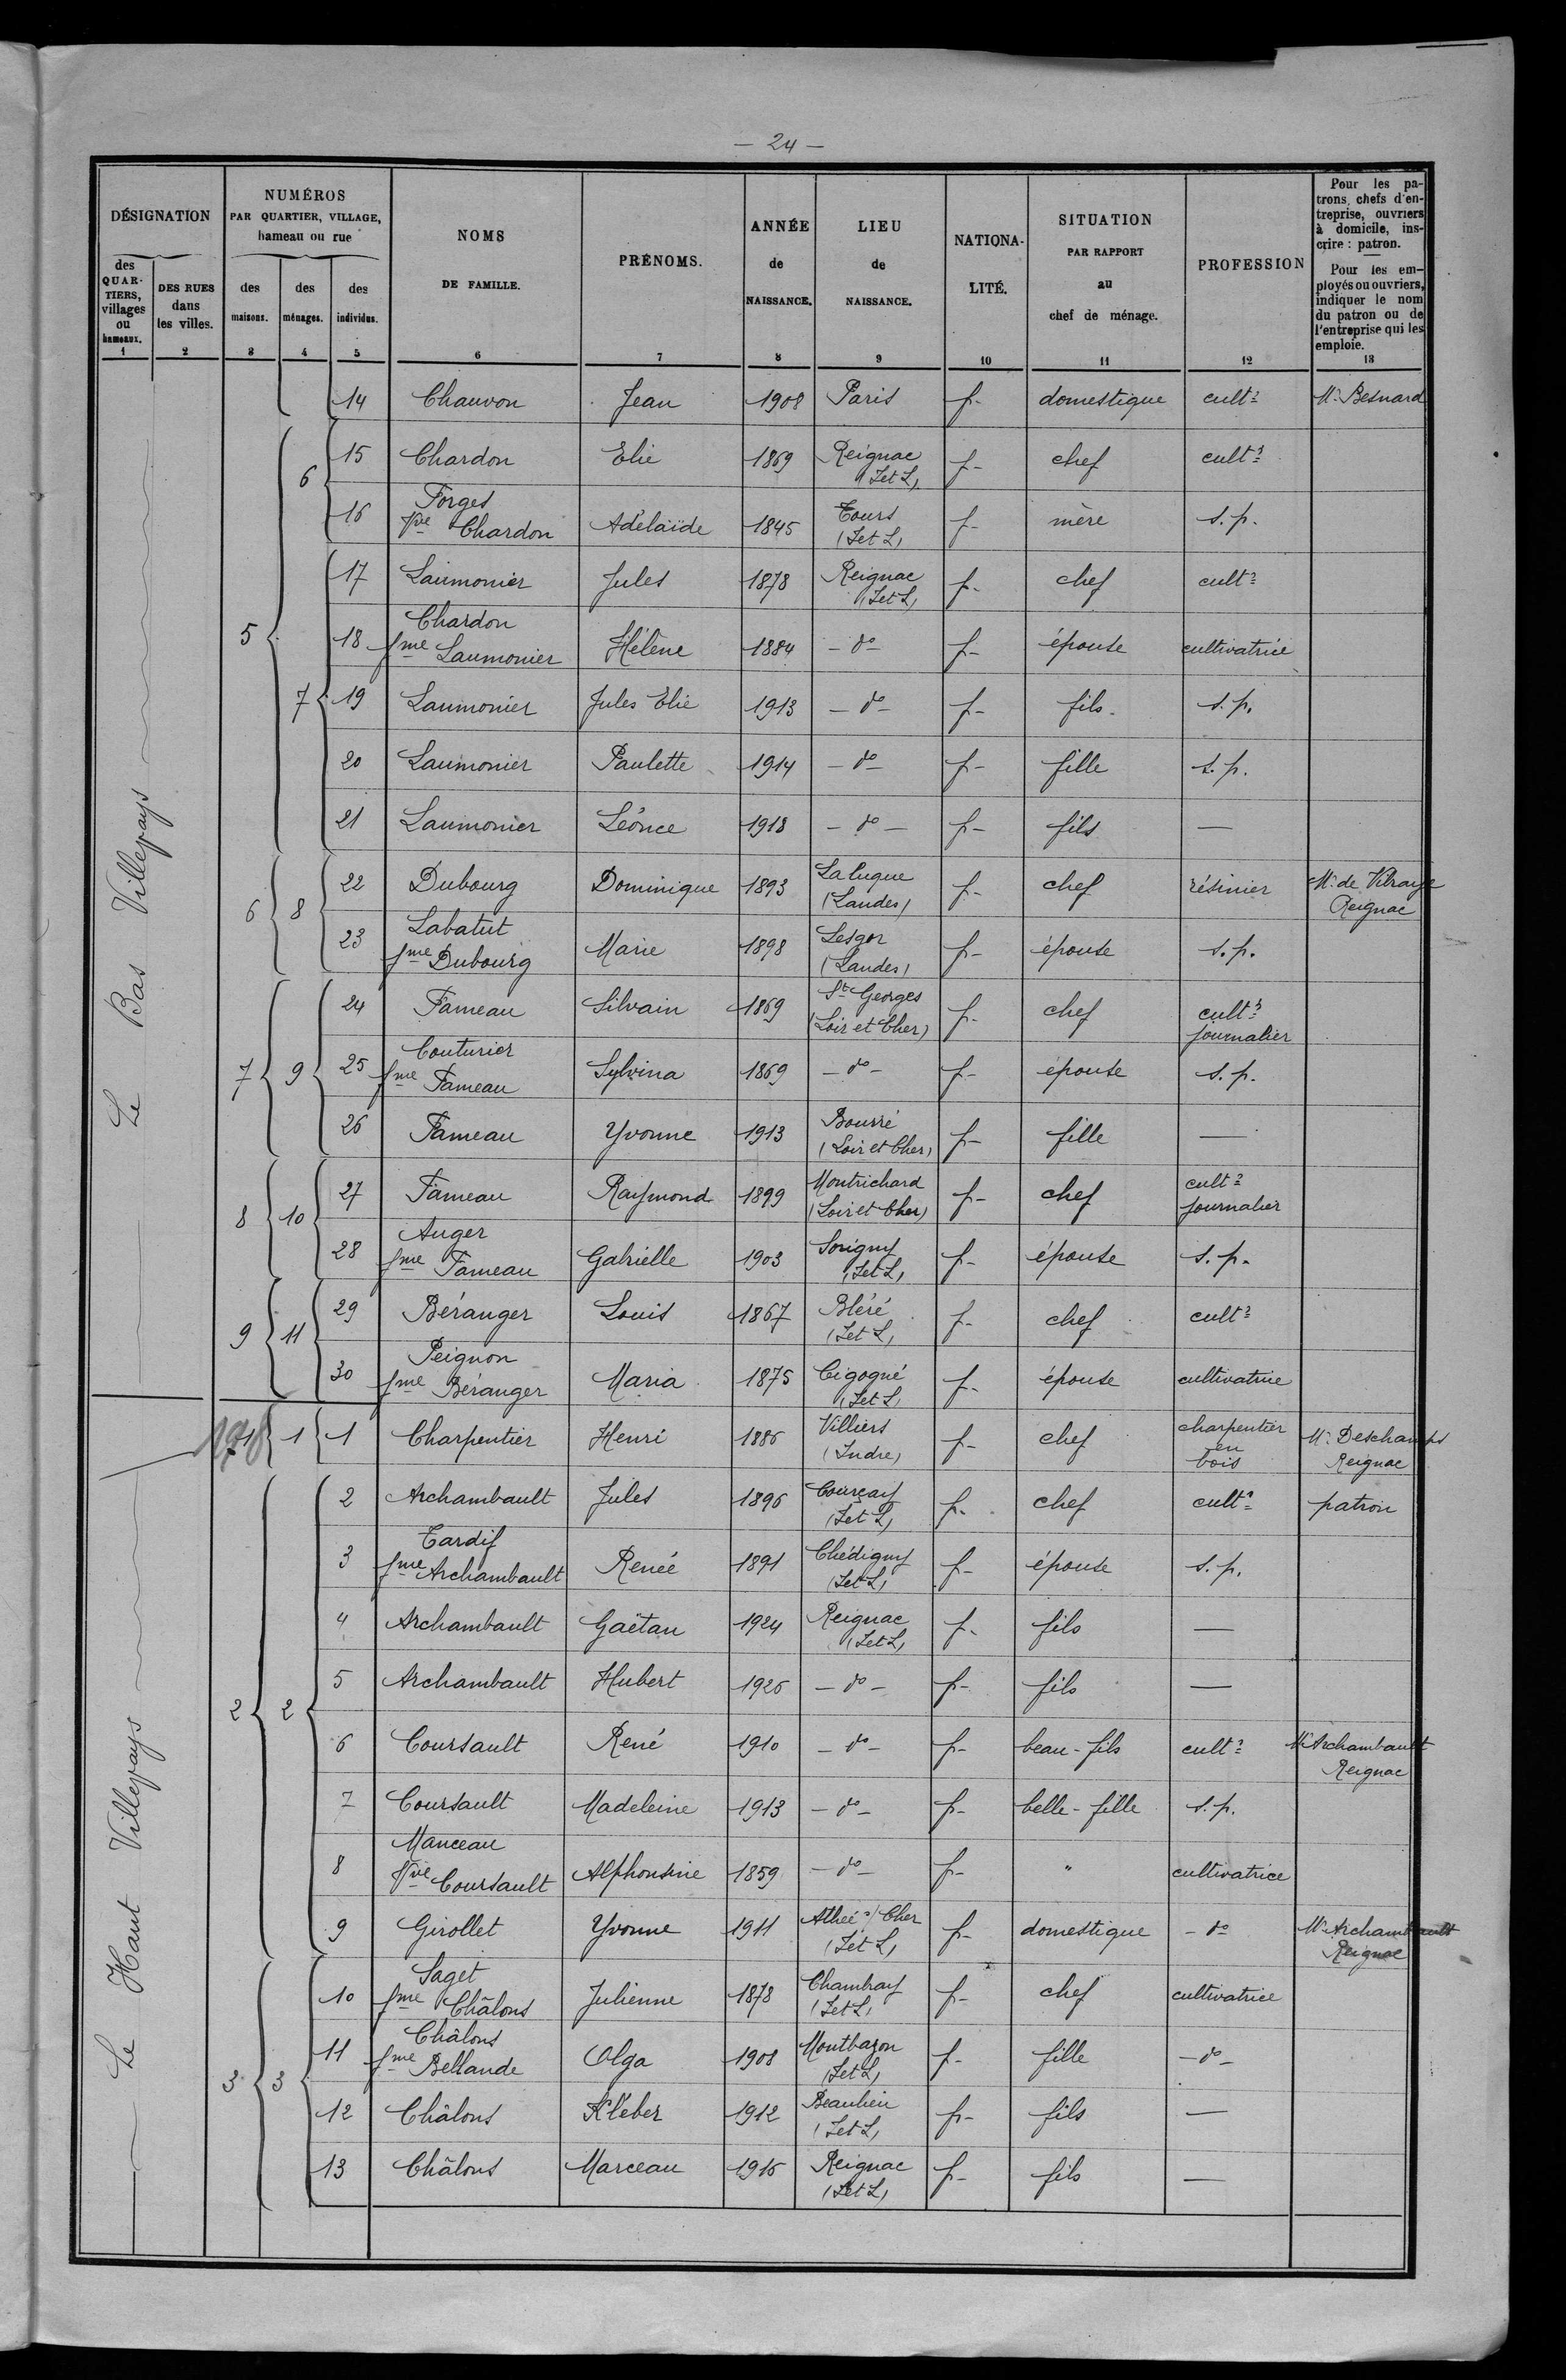 — 24 —
DÉSIGNATION
des QUARTIERS, villages ou hameaux.
1
DES RUES dans les villes.
2
NUMÉROS
PAR QUARTIER, VILLAGE,
hameau ou rue
des maisons.
3
des ménages.
4
des individus.
5
NOMS
DE FAMILLE.
6
PRÉNOMS.
7
ANNÉE
de
NAISSANCE.
8
LIEU
de
NAISSANCE.
9
NATIONA-
LITÉ.
10
SITUATION
PAR RAPPORT
au
chef de ménage.
11
PROFESSION
12
Pour les pa-
trons, chefs d'en-
treprise, ouvriers
à domicile, ins-
crire : patron.
Pour les em-
ployés ou ouvriers,
indiquer le nom
du patron ou de
l'entreprise qui les
emploie.
13
Le Bas Villepays
14 Chauvon Jean 1908 Paris f- domestique cultr Mr Besnard
5 6 15 Chardon Elie 1869 Reignac (I et L) f- chef cultr
16 Forges Vve Chardon Adélaïde 1845 Tours (I et L) f- mère s.p.
7 17 Laumonier Jules 1878 Reignac (I et L) f- chef cultr
18 Chardon fme Laumonier Hélène 1884 - do - f- épouse cultivatrice
19 Laumonier Jules Elie 1913 - do - f- fils s.p.
20 Laumonier Paulette 1914 - do - f- fille s.p.
21 Laumonier Léonce 1918 - do - f- fils —
6 8 22 Dubourg Dominique 1893 Laluque (Landes) f- chef résinier Mr de Vibraye Reignac
23 Labatut fme Dubourg Marie 1898 Lesgor (Landes) f- épouse s.p.
7 9 24 Fameau Silvain 1869 St Georges (Loir et Cher) f- chef cultr journalier
25 Couturier fme Fameau Sylvina 1869 - do - f- épouse s.p.
26 Fameau Yvonne 1913 Bourré (Loir et Cher) f- fille —
8 10 27 Fameau Raymond 1899 Montrichard (Loir et Cher) f- chef cultr journalier
28 Auger fme Fameau Gabrielle 1903 Sorigny (I et L) f- épouse s.p.
9 11 29 Béranger Louis 1867 Bléré (I et L) f- chef cultr
30 Peignon fme Béranger Maria 1875 Cigogné (I et L) f- épouse cultivatrice
Le Haut Villepays
1 1 1 Charpentier Henri 1886 Villiers (Indre) f- chef charpentier en bois Mr Deschamps Reignac
2 2 2 Archambault Jules 1896 Courçay (I et L) f- chef cultr patron
3 Tardif fme Archambault Renée 1891 Chédigny (I et L) f- épouse s.p.
4 Archambault Gaëtan 1924 Reignac (I et L) f- fils —
5 Archambault Hubert 1926 - do - f- fils —
6 Coursault René 1910 - do - f- beau-fils cultr Mr Archambault Reignac
7 Coursault Madeleine 1913 - do - f- belle-fille s.p.
8 Manceau Vve Coursault Alphonsine 1859 - do - f- " cultivatrice
9 Girollet Yvonne 1911 Athée s/ Cher (I et L) f- domestique - do Mr Archambault Reignac
3 3 10 Saget fme Châlons Julienne 1878 Chambray (I et L) f- chef cultivatrice
11 Châlons fme Bellande Olga 1908 Montbazon (I et L) f- fille - do -
12 Châlons Kléber 1912 Beaulieu (I et L) f- fils —
13 Châlons Marceau 1916 Reignac (I et L) f- fils —